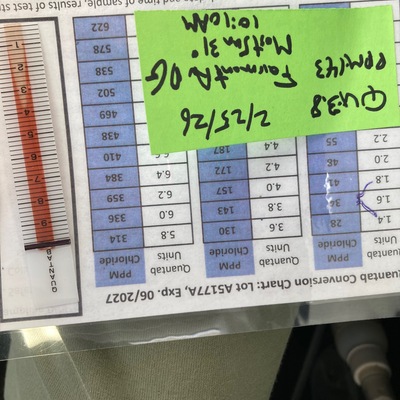 Quantab Conversion Chart: Lot A5177A, Exp. 06/2027
Quantab PPM Quantab PPM Quantab PPM
Units Chloride Units Chloride Units Chloride
1.4 28 3.6 130 5.8 314
1.6 34 3.8 143 6.0 336
1.8 41 4.0 157 6.2 359
2.0 48 4.2 172 6.4 384
2.2 55 4.4 187 6.6 410
438
469
502
538
578
622
QU 3.8 2/25/26
PPM:143 Fairmont A OG
31°
10:10AM
QUANTAB
9
8
7
6
5
4
3
2
1
time of sample, results of test